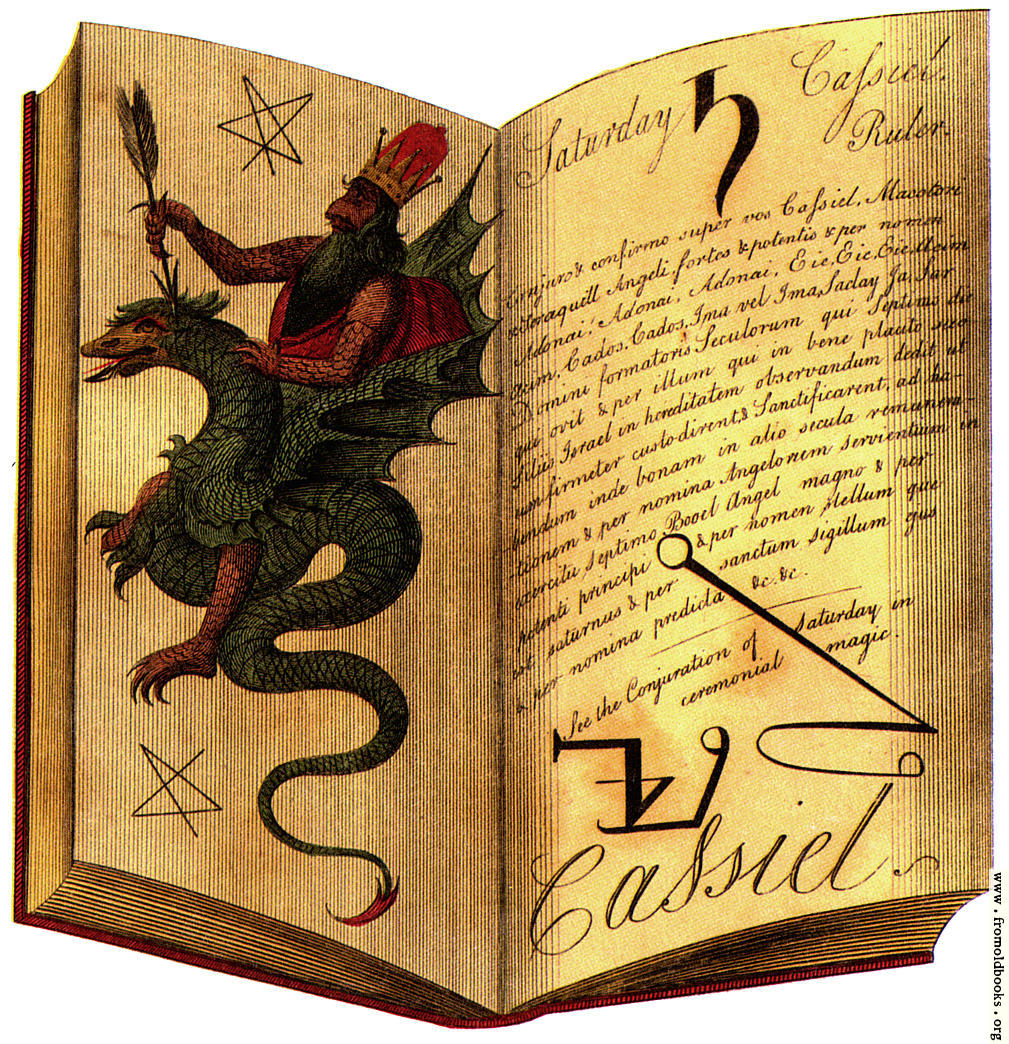 Saturday ♄ Cassiel.
Ruler.
Conjuro & confirmo super vos Cassiel, Macatori
& Seraquiel Angeli fortes & potentis & per nomen
Adonai, Adonai, Adonai, Eie, Eie, Eie, Acim
acim, Cados, Cados, Ima vel Ima, Saday Ja, Sar
Domini formatoris Seculorum qui Septimo die
qui ovit & per illum qui in bene placito suo
filiis Israel in hereditatem observandum dedit ut
eum firmeter custodirent & Sanctificarent, ad ha-
-bendam inde bonam in alio secula remunera-
-tionem & per nomina Angelorem servientium in
exercitu septimo Booel Angel magno & per
potenti principi & per nomen stellum que
est saturnus & per sanctum sigillum qus
& per nomina predicta &c. &c.
See the Conjuration of Saturday in
ceremonial magic.
Cassiel.
www.fromoldbooks.org